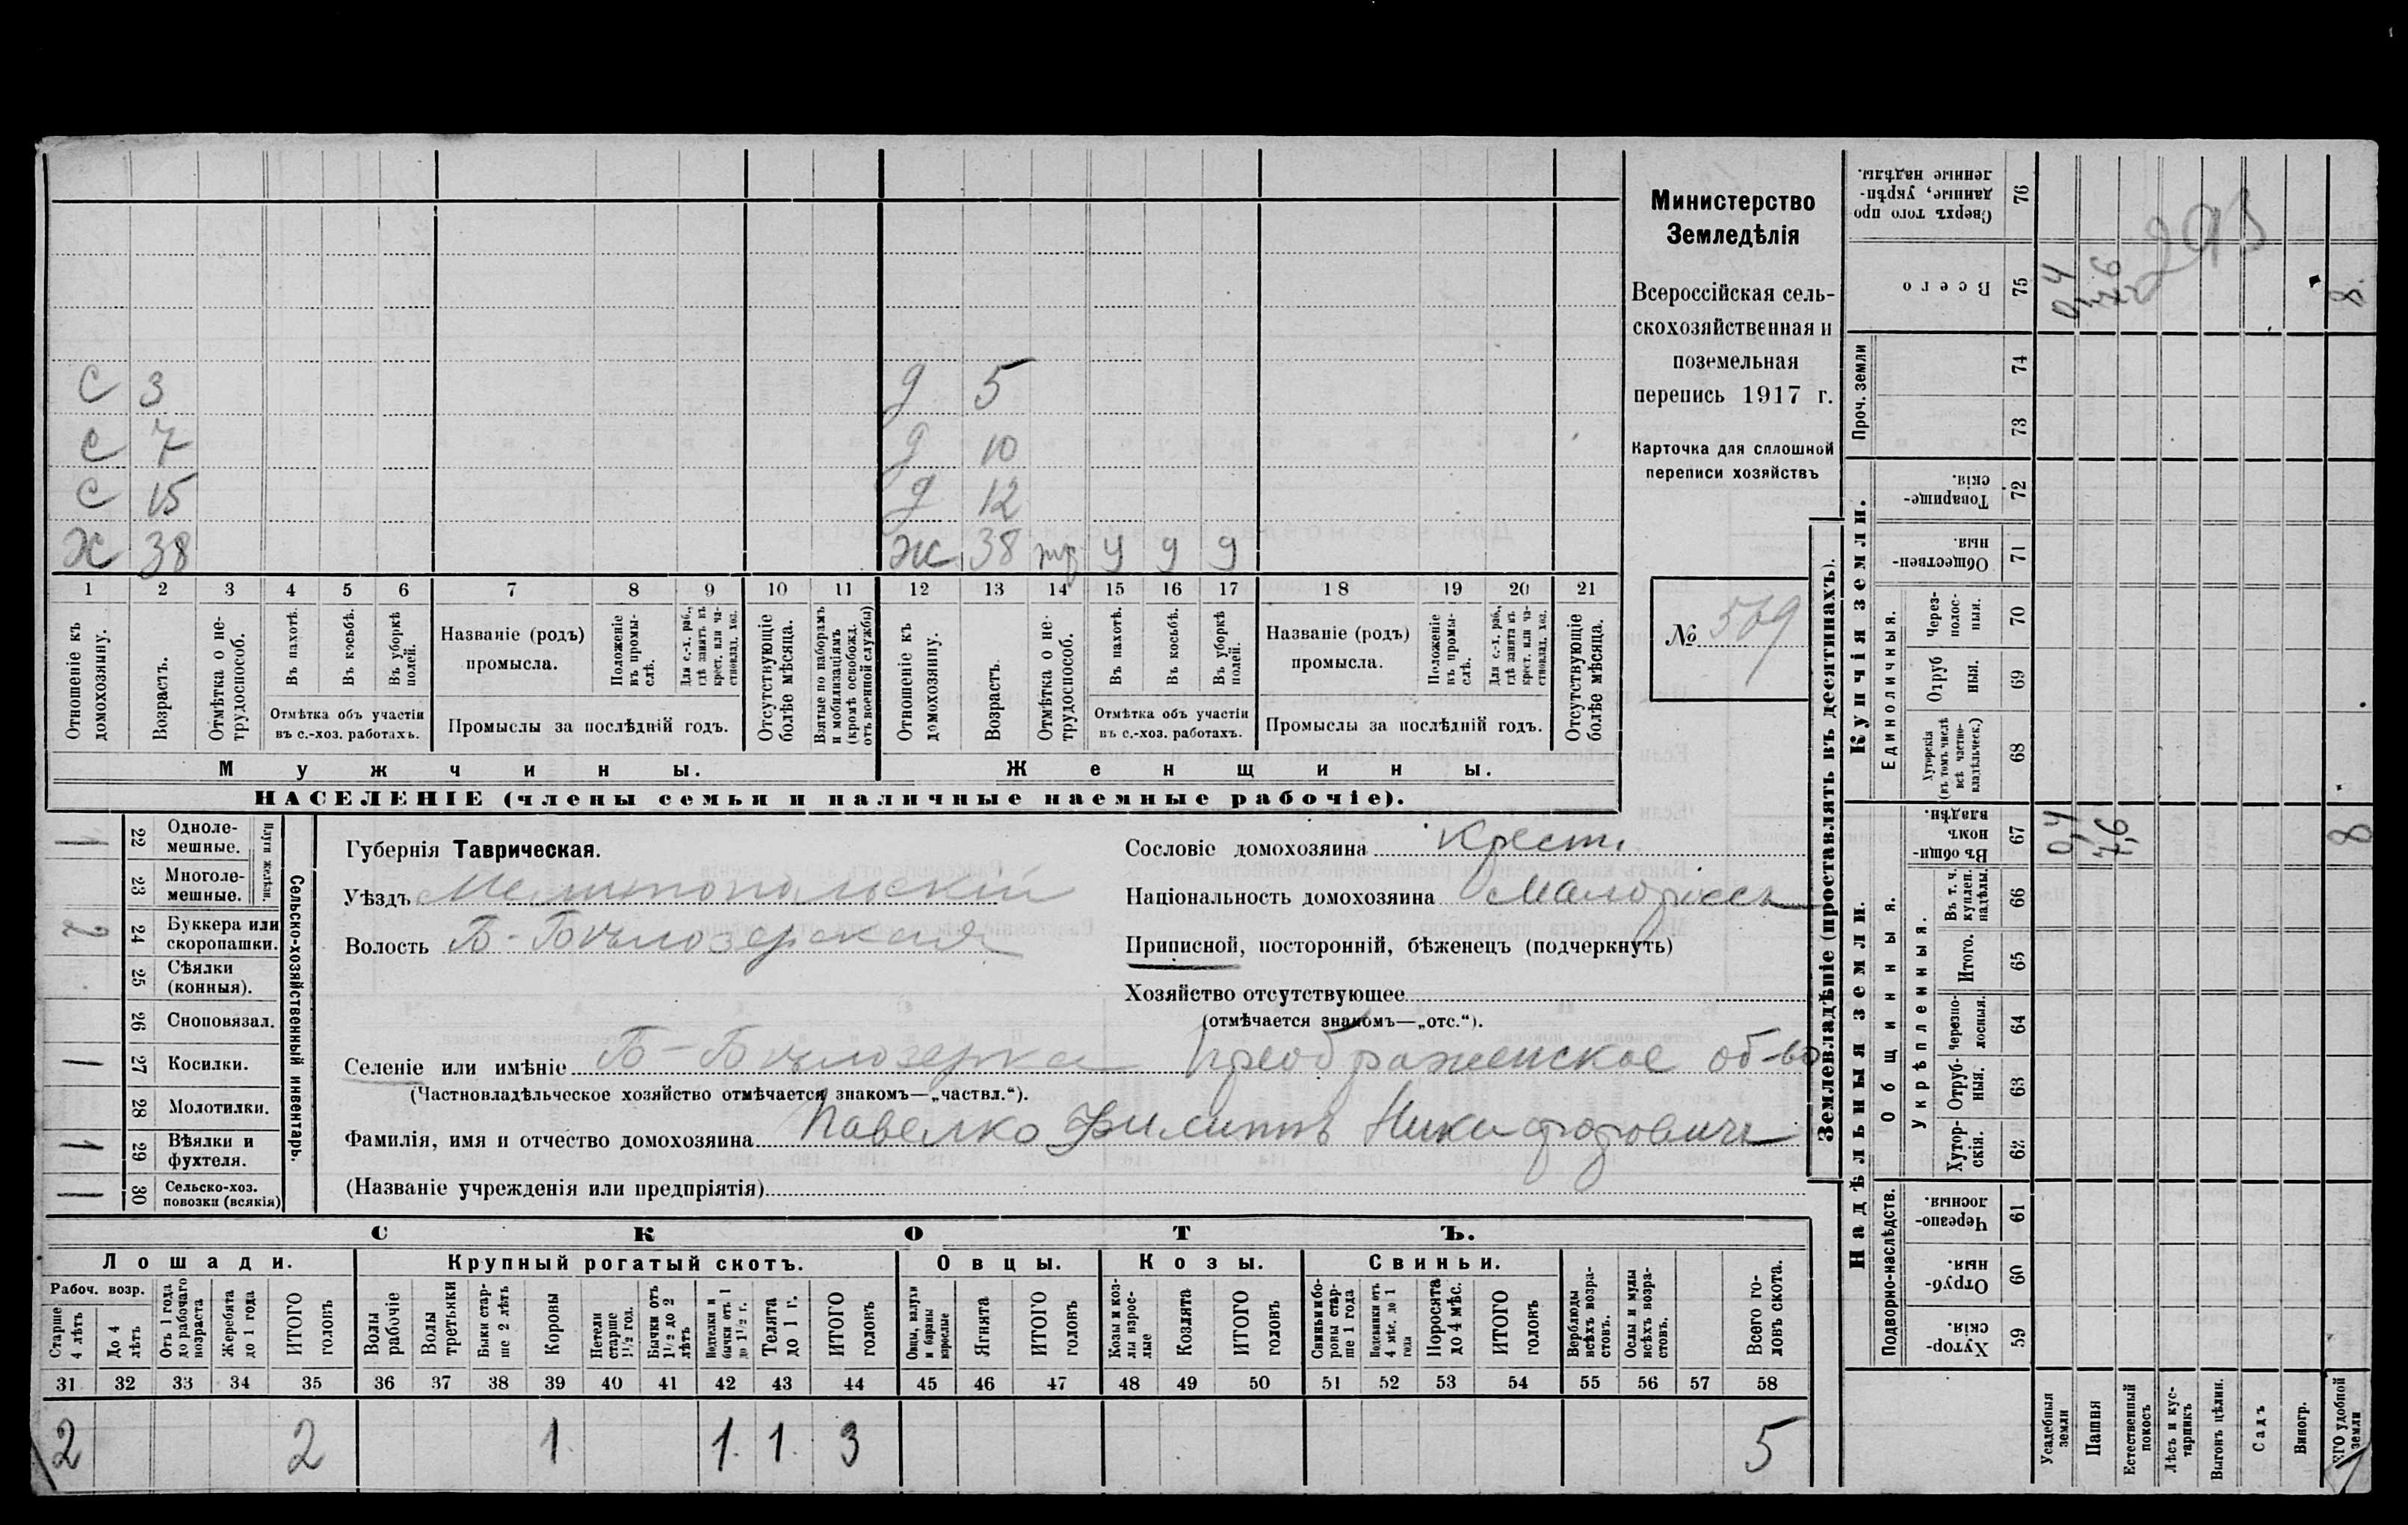 С 3 д 5
С 7 д 10
С 15 д 12
Х 38 Ж 38
1 2 3 4 5 6 7 8 9 10 11 12 13 14 15 16 17 18 19 20 21
Отношеніе къ домохозяину.
Возрастъ.
Отмѣтка о не-трудоспособ.
Въ пахотѣ.
Въ косьбѣ.
Въ уборкѣ полей.
Отмѣтка объ участіи
въ с.-хоз. работахъ.
Названіе (родъ)
промысла.
Положеніе въ промы-слѣ.
Для с.-х. раб., гдѣ занятъ въ крест. или ча-стновлад. хоз.
Промыслы за послѣдній годъ.
Отсутствующіе болѣе мѣсяца.
Взятые по наборамъ и мобилизаціямъ (кромѣ освобожд. отъ военной службы)
Отношеніе къ домохозяину.
Возрастъ.
Отмѣтка о не-трудоспособ.
Въ пахотѣ.
Въ косьбѣ.
Въ уборкѣ полей.
Отмѣтка объ участіи
въ с.-хоз. работахъ.
Названіе (родъ)
промысла.
Положеніе въ промы-слѣ.
Для с.-х. раб., гдѣ занята въ крест. или ча-стновлад. хоз.
Промыслы за послѣдній годъ.
Отсутствующіе болѣе мѣсяца.
Мужчины. Женщины.
НАСЕЛЕНІЕ (члены семьи и наличные наемные рабочіе).
Министерство
Земледѣлія
Всероссійская сель-
скохозяйственная и
поземельная
перепись 1917 г.
Карточка для сплошной
переписи хозяйствъ
№ 569
Сельско-хозяйственный инвентарь.
Плуги желѣзн.
1 22 Одноле-мешные.
23 Многоле-мешные.
2 24 Буккера или скоропашки.
25 Сѣялки (конныя).
26 Сноповязал.
1 27 Косилки.
28 Молотилки.
1 29 Вѣялки и фухтеля.
1 30 Сельско-хоз. повозки (всякія)
Губернія Таврическая.
Уѣздъ Мелитопольскій
Волость Б-Бѣлозерская
Сословіе домохозяина Крест.
Національность домохозяина Малоросс
Приписной, посторонній, бѣженецъ (подчеркнуть)
Хозяйство отсутствующее
(отмѣчается знакомъ—„отс.“).
Селеніе или имѣніе Б-Бѣлозерка Преображенское об-во
(Частновладѣльческое хозяйство отмѣчается знакомъ—„частвл.“).
Фамилія, имя и отчество домохозяина Павелко Филиппъ Никифоровичъ
(Названіе учрежденія или предпріятія)
СКОТЪ.
Лошади. Крупный рогатый скотъ. Овцы. Козы. Свиньи.
Рабоч. возр.
Старше 4 лѣтъ
До 4 лѣтъ
Отъ 1 года до рабочаго возраста
Жеребята до 1 года
ИТОГО головъ
Волы рабочіе
Волы третьяки
Быки стар-ше 2 лѣтъ
Коровы
Нетели старше 1½ год.
Бычки отъ 1½ до 2 лѣтъ
Подтелки и бычки отъ 1 до 1½ г.
Телята до 1 г.
ИТОГО головъ
Овцы, валухи и бараны взрослые
Ягнята
ИТОГО головъ
Козы и коз-лы взрос-лые
Козлята
ИТОГО головъ
Свиньи и бо-роны стар-ше 1 года
Подсвинки отъ 4 мѣс. до 1 года
Поросята до 4 мѣс.
ИТОГО головъ
Верблюды всѣхъ возра-стовъ.
Ослы и мулы всѣхъ возра-стовъ.
Всего го-ловъ скота.
31 32 33 34 35 36 37 38 39 40 41 42 43 44 45 46 47 48 49 50 51 52 53 54 55 56 57 58
2 2 1 1 1 3 5
Землевладѣніе (проставлять въ десятинахъ).
Сверхъ того про-данные, укрѣп-ленные надѣлы. 76
Всего 75 0,4 7,6 8
Проч. земли 74 73
Купчія земли.
Товарище-скія. 72
Обществен-ныя. 71
Единоличныя.
Через-полос-ныя. 70
Отруб-ныя. 69
Хуторскія (въ томъ числѣ всѣ частно-владѣльческ.) 68
Надѣльныя земли.
Общинныя.
Въ общи-номъ владѣн. 67 0,4 7,6 8
Укрѣпленныя.
Въ т. ч. куплен. надѣлы. 66
Итого. 65
Черезпо-лосныя. 64
Отруб-ныя. 63
Хутор-скія. 62
Подворно-наслѣдств.
Черезпо-лосныя 61
Отруб-ныя. 60
Хутор-скія. 59
Усадебныя земли
Пашня
Естественный покосъ
Лѣсъ и кус-тарникъ
Выгонъ цѣлин.
Садъ
Виногр.
ЕГО удобной земли